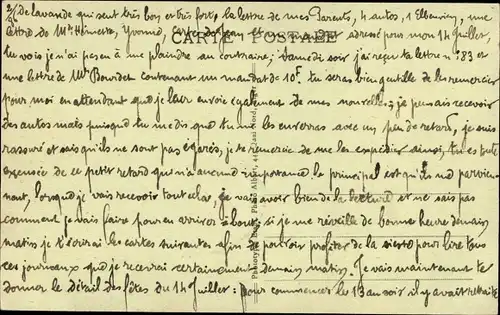 2/ de lavande qui sent très bon et très fort, la lettre de mes Parents, 4 autos, 1 Elbeuvien, une
lettre de Mme Yvonne, Carte de Jean et une adressé pour mon 14 Juillet,
CARTE POSTALE
tu vois je n'ai pas eu à me plaindre au contraire; Samedi soir j'ai reçu ta lettre n: 83 et
une lettre de Mme Bourdet contenant un mandat de 10f. tu seras bien gentille de les remercier
pour moi en attendant que je leur envoie également de mes nouvelles, je pensais recevoir
des autos mais puisque tu me dis que tu me les enverras avec un peu de retard, je suis
rassuré et sais qu'ils ne sont pas égarés, je te remercie de me les expédier ainsi, tu es toute
excusée de ce petit retard qui n'a aucune importance le principal est qu'ils me parvien-
nent, lorsque je vais recevoir tout cela, je vais avoir bien de la lecture et ne sais pas
comment je vais faire pour en arriver à bout, si je me réveille de bonne heure demain
matin je t'écrirai les cartes suivantes afin de pouvoir profiter de la sieste pour lire tous
ces journaux que je recevrai certainement demain matin. Je vais maintenant te
donner le détail des fêtes du 14 Juillet: pour commencer le 13 au soir il y avait retraite